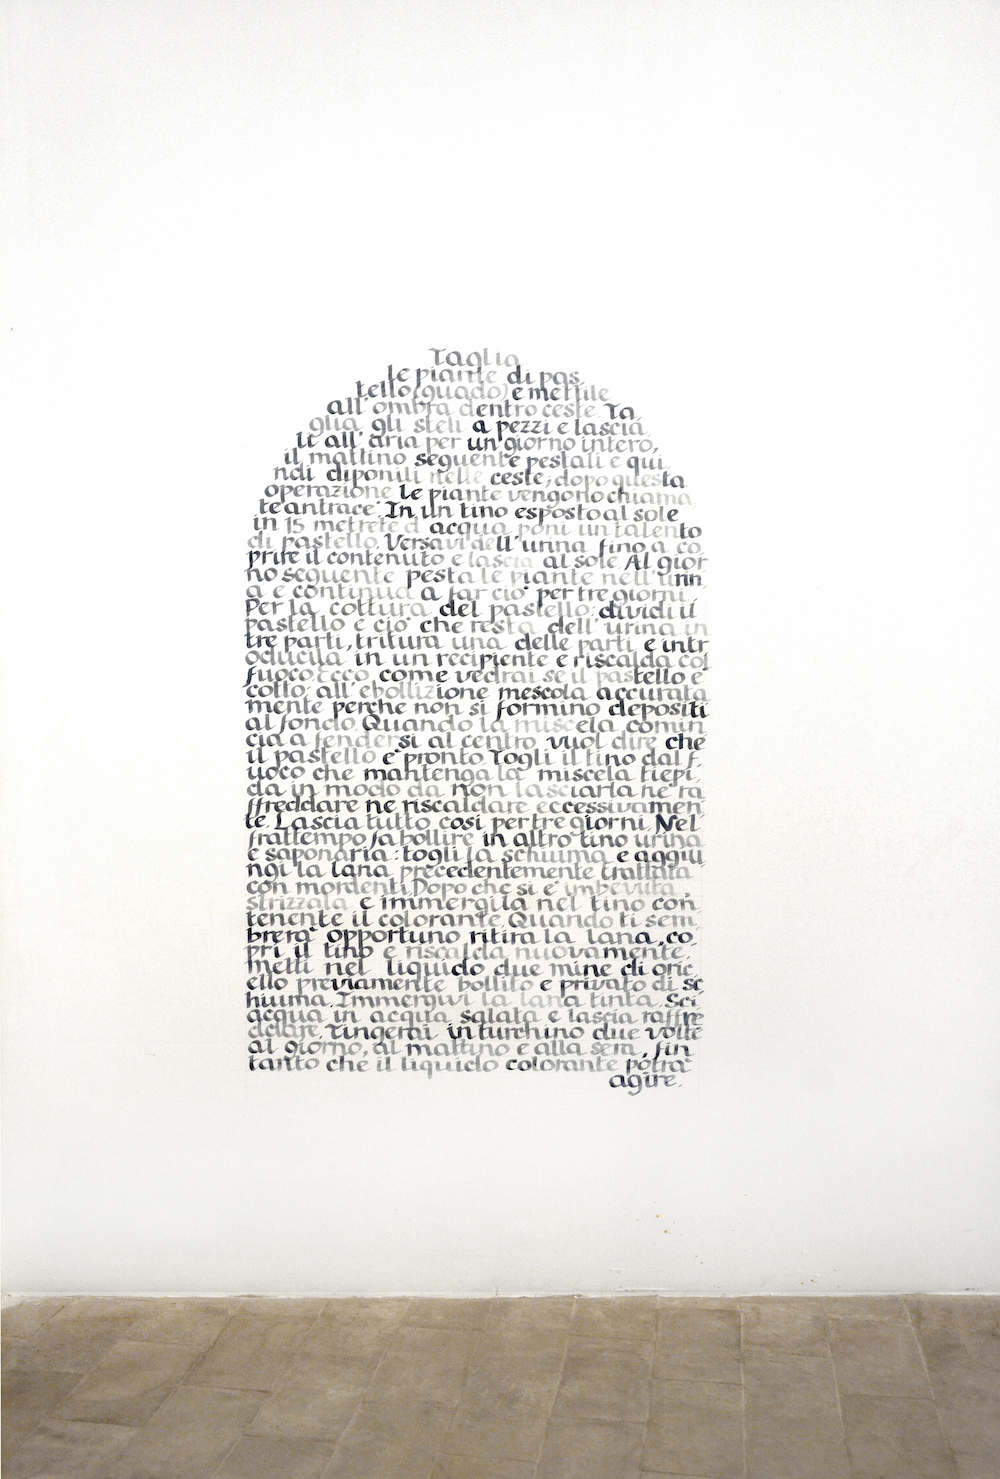 Taglia
le piante di pas
tello (guado) e mettile
all'ombra dentro ceste. Ta
glia gli steli a pezzi e lascia
li all'aria per un giorno intero,
il mattino seguente pestali e qui
ndi diponili nelle ceste; dopo questa
operazione le piante vengono chiama
te antrace. In un tino esposto al sole
in 15 metrete d'acqua poni un talento
di pastello. Versavi dell'urina fino a co
prire il contenuto e lascia al sole. Al gior
no seguente pesta le piante nell'urin
a e continua a far ciò per tre giorni.
Per la cottura del pastello: dividi il
pastello e ciò che resta dell'urina in
tre parti, tritura una delle parti e intr
oducila in un recipiente e riscalda col
fuoco. Ecco come vedrai se il pastello è
cotto: all'ebollizione mescola accurata
mente perche non si formino depositi
al fondo. Quando la miscela comin
cia a fendersi al centro vuol dire che
il pastello è pronto. Togli il tino dal f.
uoco che mantenga la miscela tiepi
da in modo da non lasciarla ne ra
ffreddare ne riscaldare eccessivamen
te. Lascia tutto così per tre giorni. Nel
frattempo fa bollire in altro tino urina
e saponaria: togli la schiuma e aggiu
ngi la lana precedentemente trattata
con mordenti. Dopo che si è imbevuta,
strizzala e immergila nel tino con
tenente il colorante. Quando ti sem
brerà opportuno ritira la lana, co
pri il tino e riscalda nuovamente.
metti nel liquido due mine di oric
ello previamente bollito e privato di sc
hiuma. Immergivi la lana tinta. Sci
acqua in acqua salata e lascia raffre
ddare. Tingerai in turchino due volte
al giorno, al mattino e alla sera, fin
tanto che il liquido colorante potrà
agire.